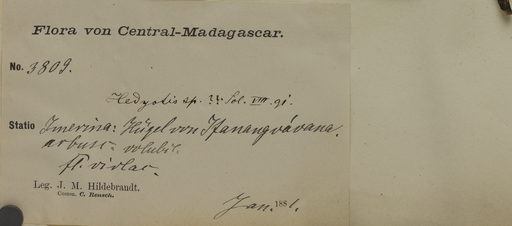 Flora von Central-Madagascar.
No. 3809.
Hedyotis sp. Sol. VIII. 91.
Statio Imerina: Hügel von Ifanangoávana.
arbusc. volubil.
fl. violac.
Leg. J. M. Hildebrandt.
Comm. C. Rensch.
Jan. 1881.